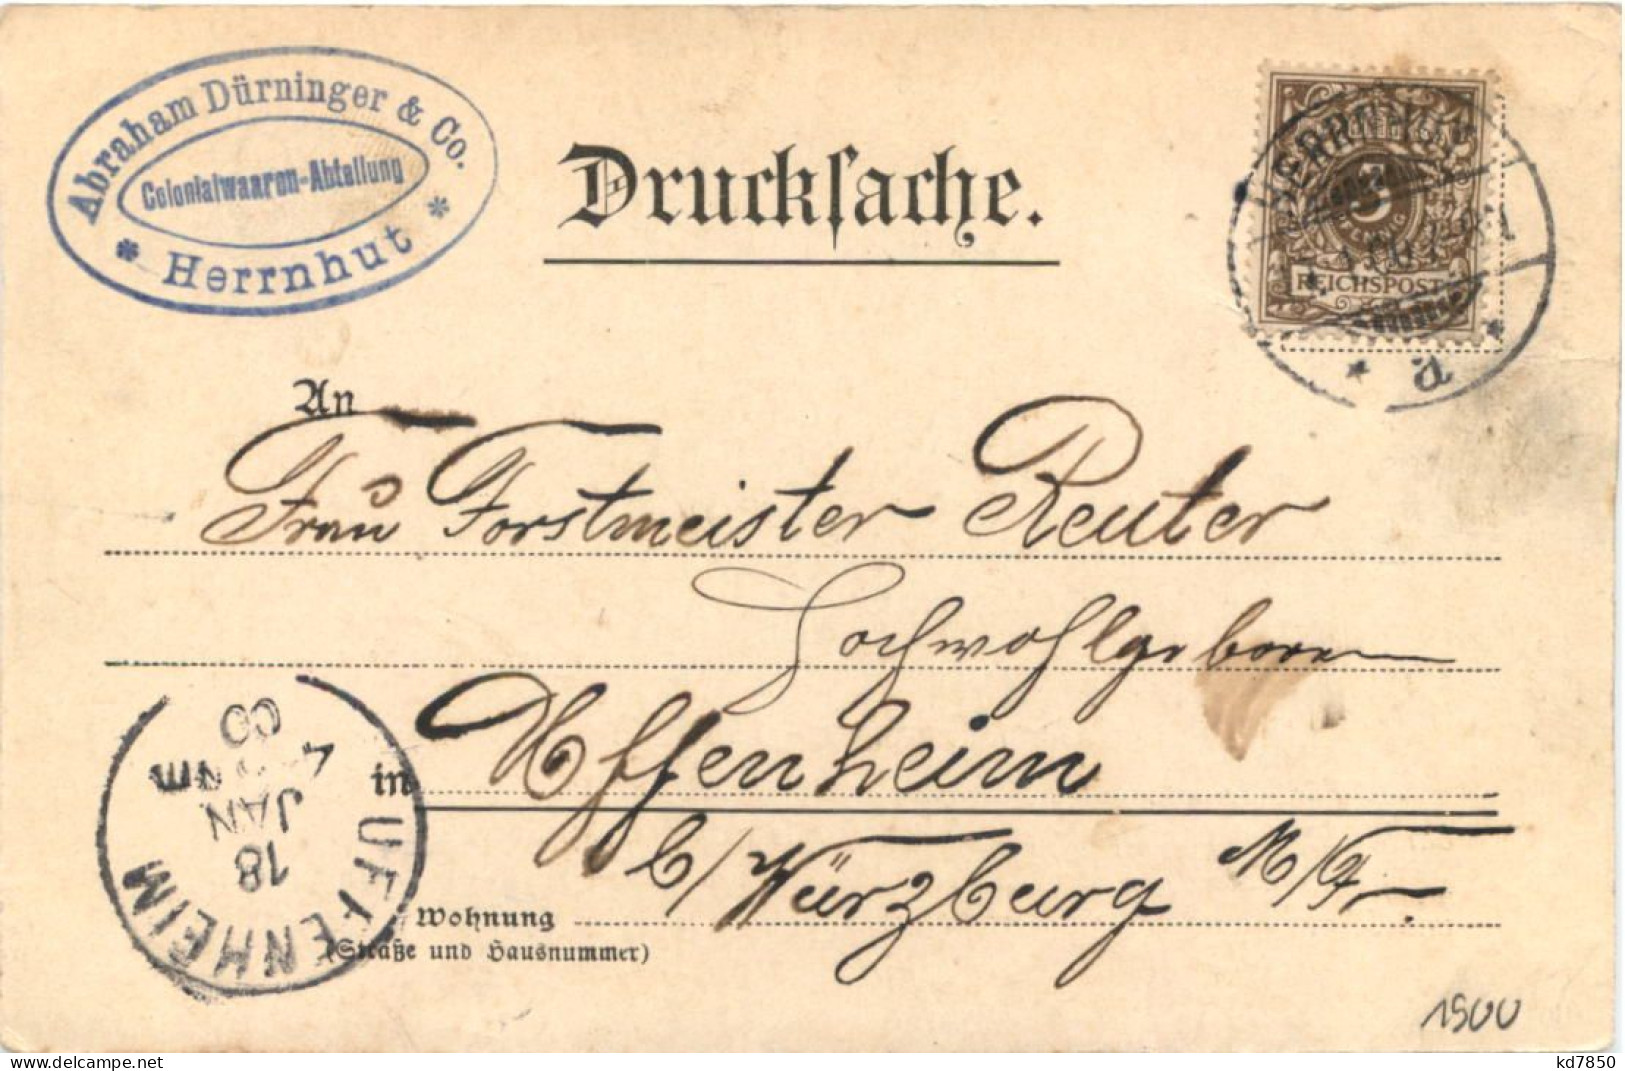 Abraham Dürninger & Co.
Colonialwaaren-Abteilung
* Herrnhut *
Drucksache.
HERRNHUT
3
PFENNIG
REICHSPOST
* a *
An
Frau Forstmeister Reuter
Hochwohlgeboren
in Uffenheim
b/ Würzburg M/Fr.
Wohnung
(Straße und Hausnummer)
UFFENHEIM
18
JAN
00
1900
delcampe.net
kd7850